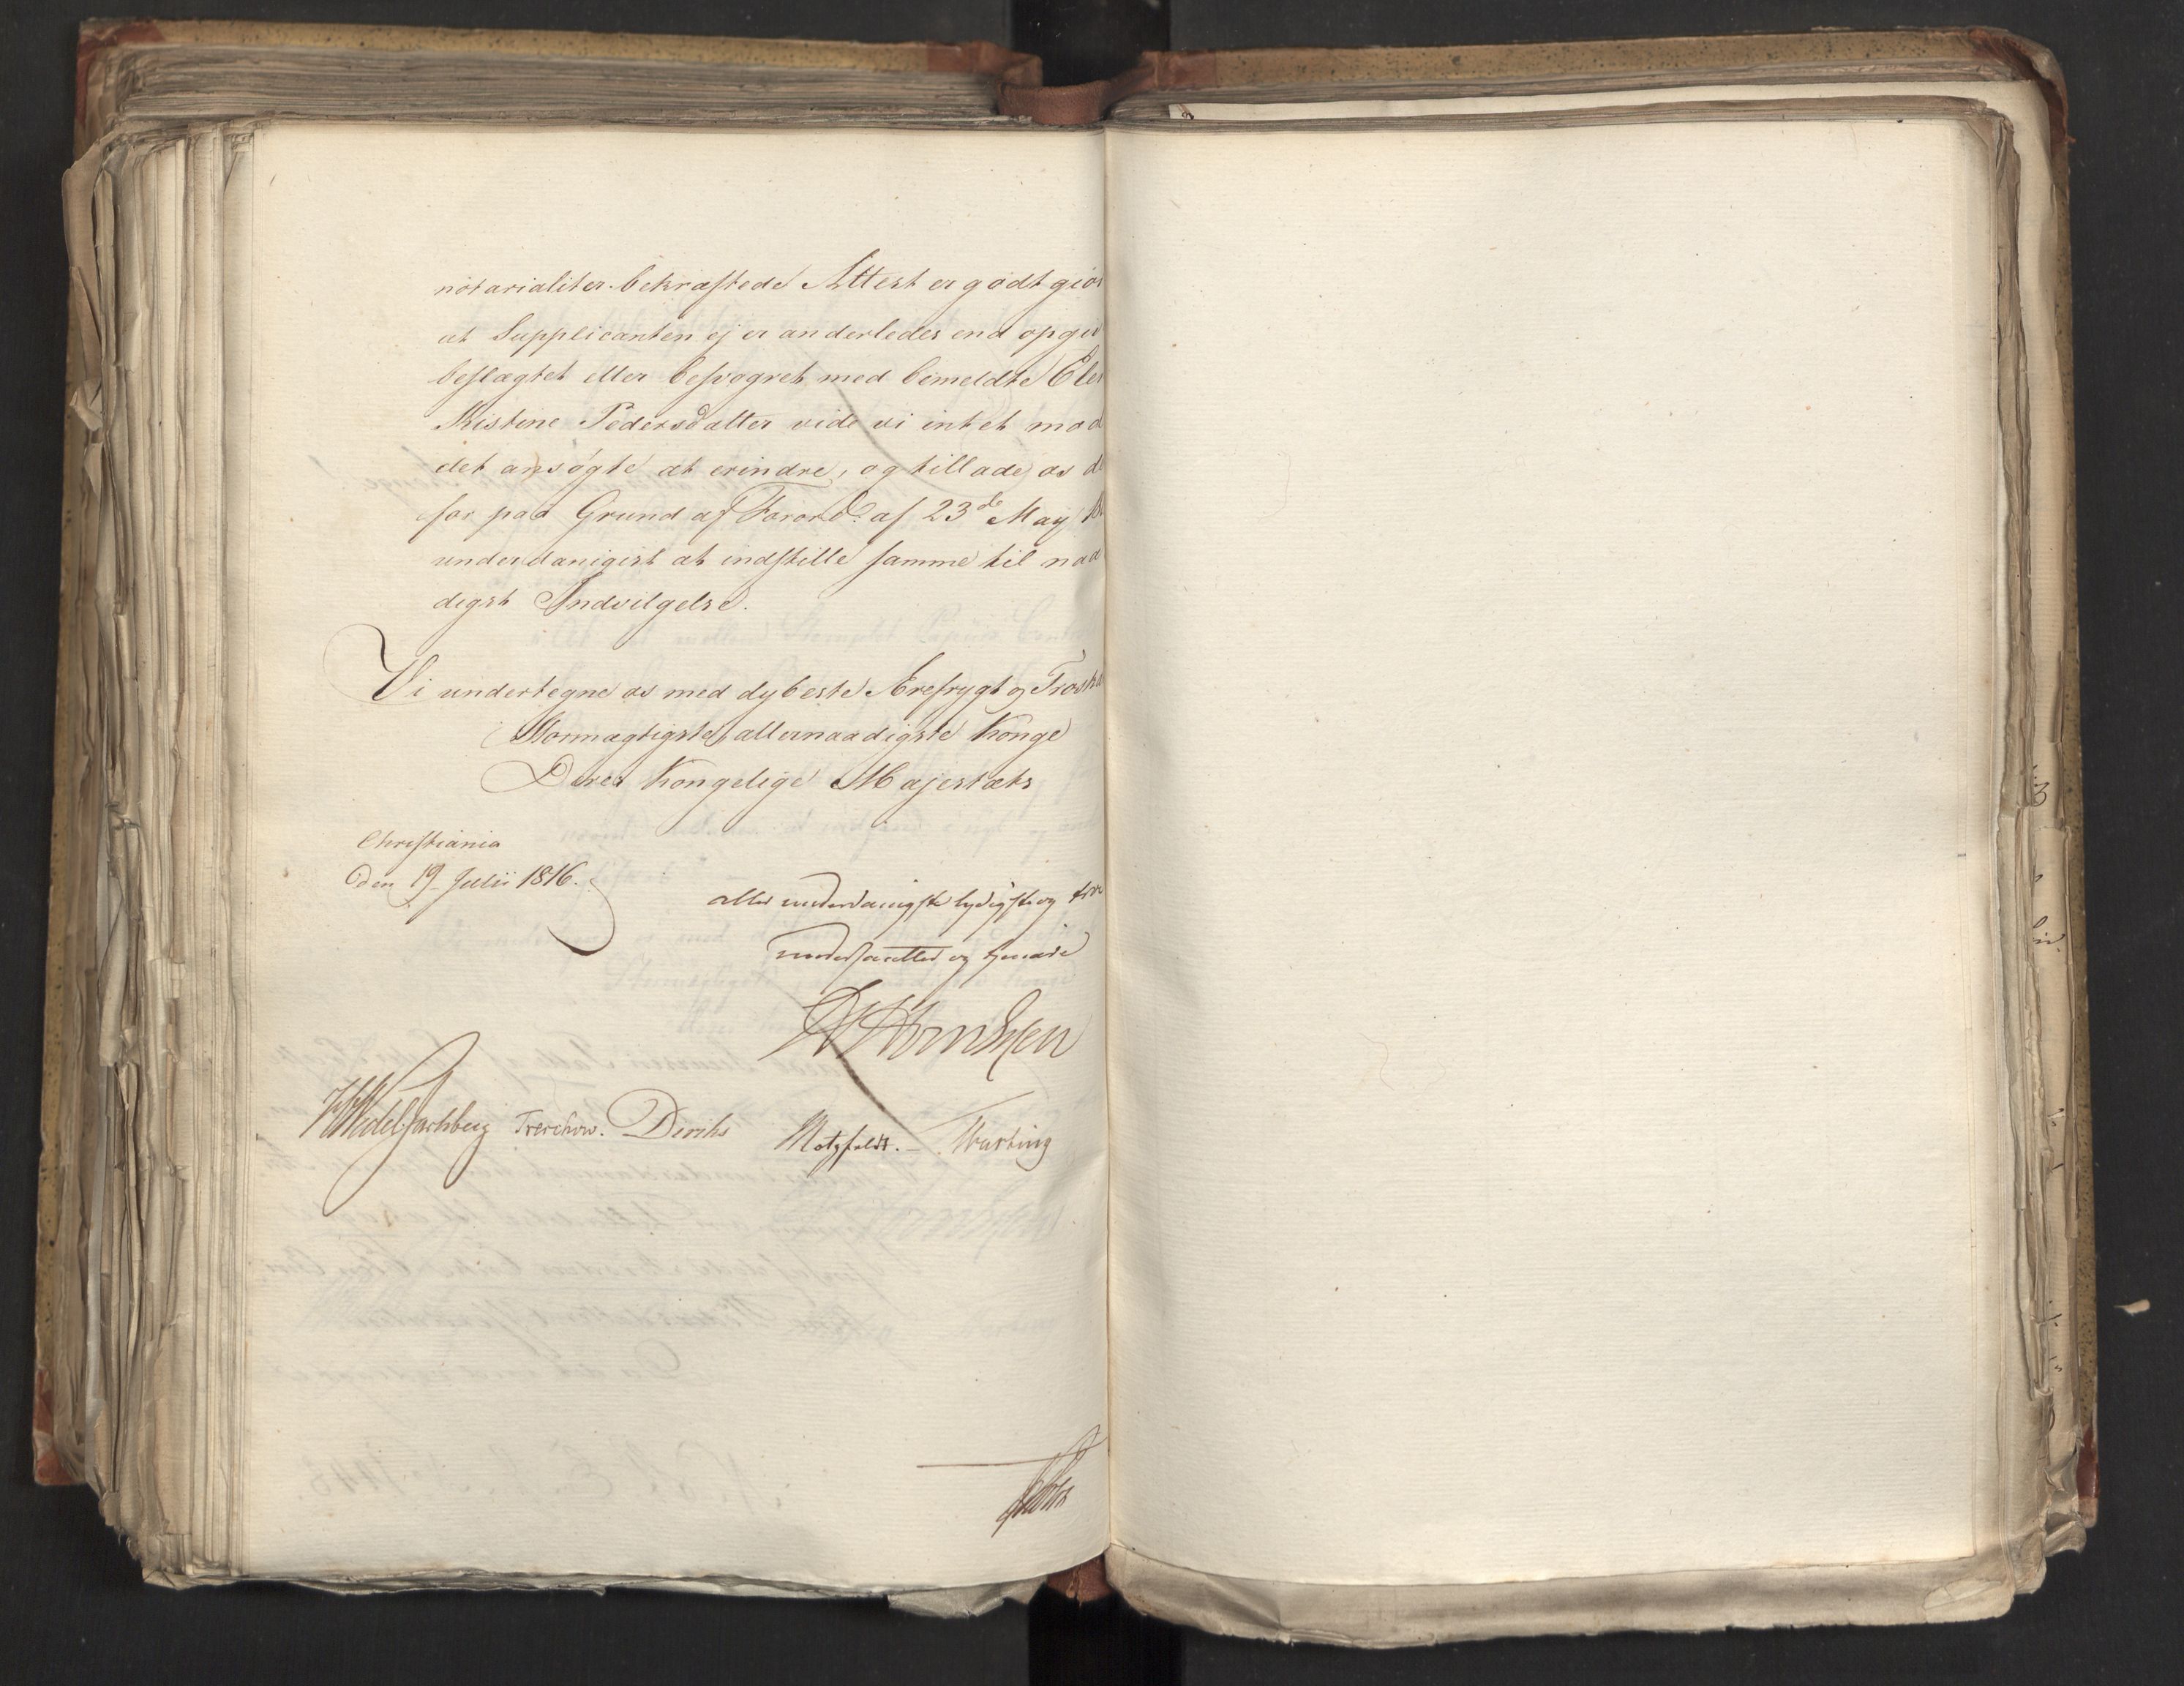 notarialiter bekræftede Attest er godtgiør
at Supplicanten ej er anderledes end opgiv
beslægtet eller besvogret med bemeldte Elen
Kistine Pedersdatter vide vi intet mod
det ansøgte at erindre, og tillade os de
for paa Grund af Forord: af 23de May 18
underdanigst at indstille samme til naa
digst Indvilgelse.
Vi undertegne os med dybeste Ærefrygt og Troska
Stormægtigste, allernaadigste Konge
Deres Kongelige Majestæts
Christiania
den 19 Julii 1816.
aller underdanigste lydigste og troe
undersaatter og tjenere
Wedel Jarlsberg Treschow. Diriks Motzfeldt. —